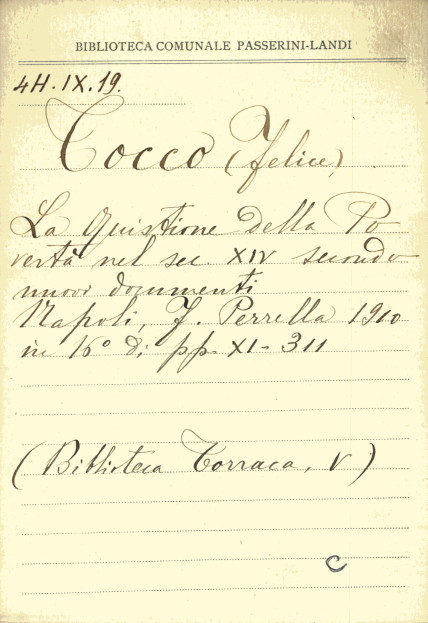 BIBLIOTECA COMUNALE PASSERINI-LANDI
4H.IX.19.
Tocco (Felice)
La quistione della Po
vertà nel sec. XIV secondo
nuovi documenti
Napoli, F. Perrella 1910
in 16° di pp. XI-311
(Biblioteca Torraca, V)
C